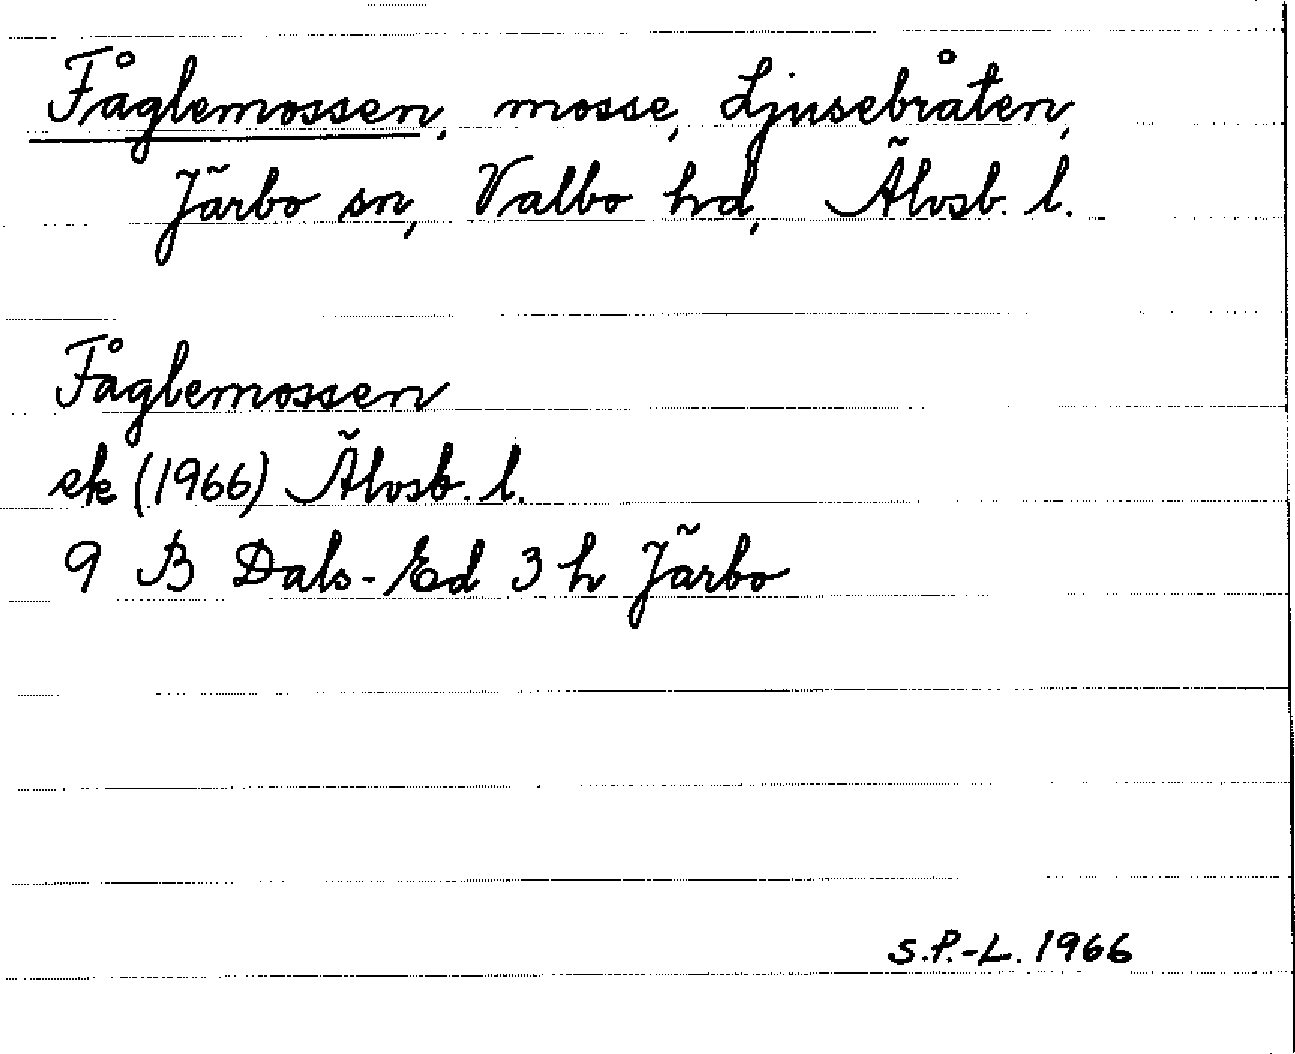 Fåglemossen, mosse, Ljusebråten,
Järbo sn, Valbo hd, Älvsb. l.
Fåglemossen
ek (1966) Älvsb. l.
9 B Dals-Ed 3 h Järbo
S.P.-L. 1966